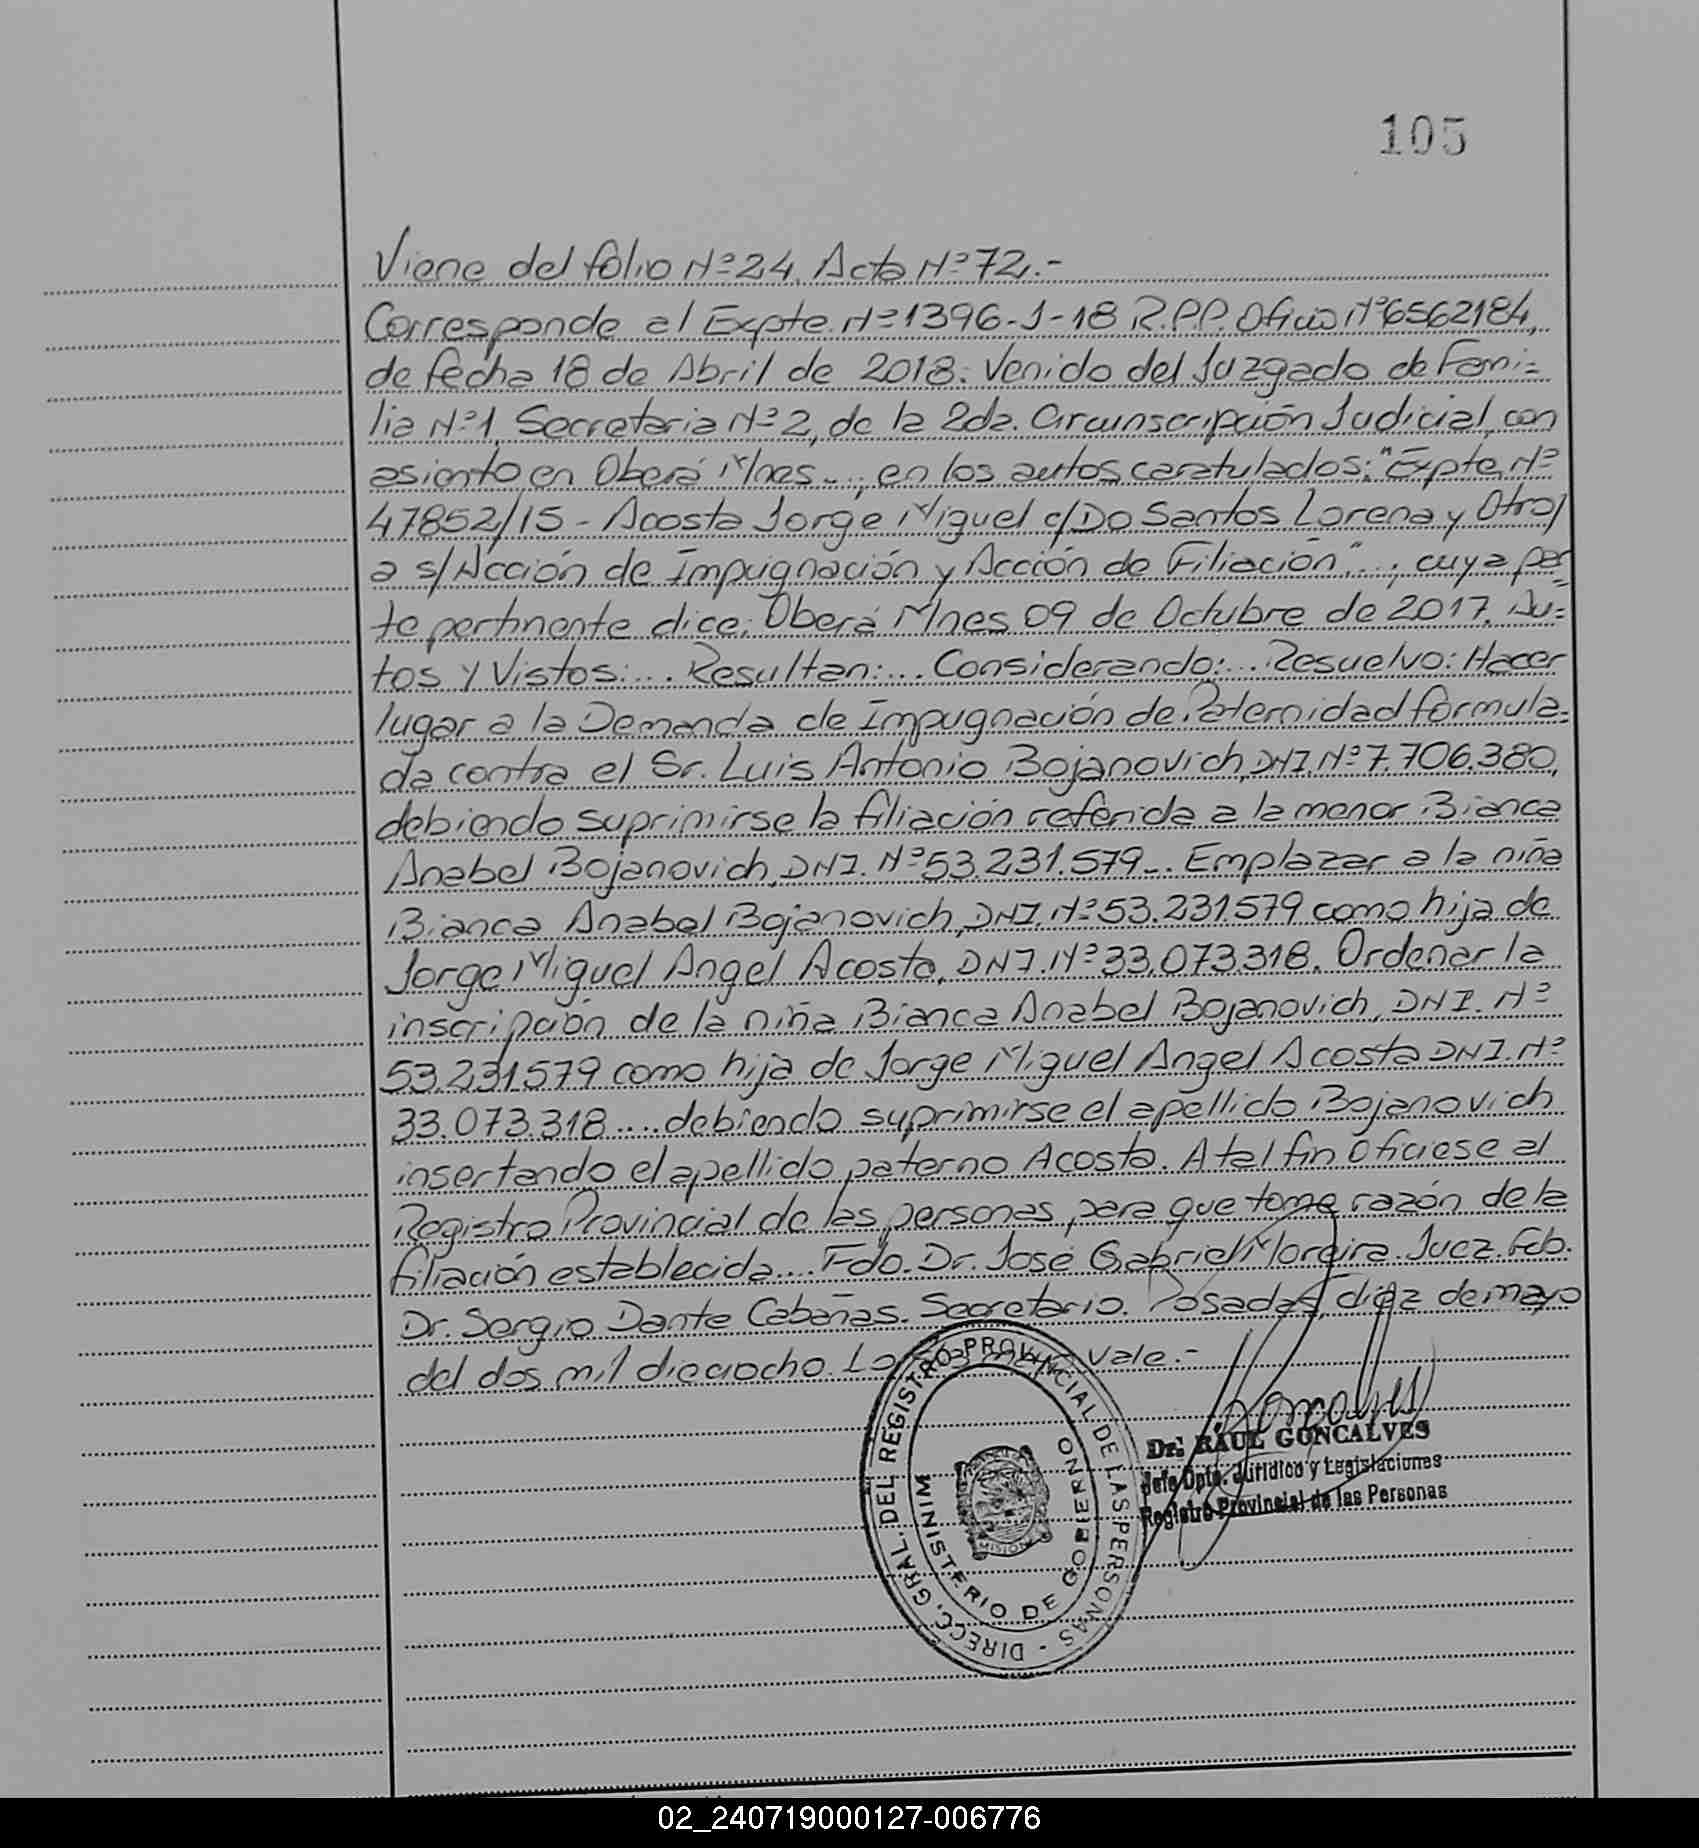 105
Viene del folio Nº 24. Acta Nº 72.-
Corresponde al Expte. Nº 1396-J-18 R.P.P. Oficio Nº 6562184,
de fecha 18 de Abril de 2018. Venido del Juzgado de Fami=
lia Nº 1, Secretaria Nº 2, de la 2da. Circunscripción Judicial, con
asiento en Oberá Mnes..., en los autos caratulados: "Expte. Nº
47852/15 - Acosta Jorge Miguel c/Do Santos Lorena y Otro/
a s/Acción de Impugnación y Acción de Filiación"..., cuya par=
te pertinente dice: Oberá Mnes 09 de Octubre de 2017. Au=
tos y Vistos:... Resultan:... Considerando:... Resuelvo: Hacer
lugar a la Demanda de Impugnación de Paternidad formula=
da contra el Sr. Luis Antonio Bojanovich, DNI. Nº 7.706.380,
debiendo suprimirse la filiación referida a la menor Bianca
Anabel Bojanovich, DNI. Nº 53.231.579... Emplazar a la niña
Bianca Anabel Bojanovich, DNI. Nº 53.231.579 como hija de
Jorge Miguel Angel Acosta, DNI. Nº 33.073.318. Ordenar la
inscripción de la niña Bianca Anabel Bojanovich, DNI. Nº
53.231.579 como hija de Jorge Miguel Angel Acosta DNI. Nº
33.073.318.... debiendo suprimirse el apellido Bojanovich
insertando el apellido paterno Acosta. A tal fin ofíciese al
Registro Provincial de las personas para que tome razón de la
filiación establecida.... Fdo. Dr. José Gabriel Moreira. Juez. Feb.
Dr. Sergio Dante Cabañas. Secretario. Posadas, diez de mayo
del dos mil dieciocho. Vale.-
DIRECC. GRAL. DEL REGISTRO PROVINCIAL DE LAS PERSONAS -
MINISTERIO DE GOBIERNO
MISIONES
Dr. RAUL GONCALVES
Jefe Dpto. Jurídico y Legislaciones
Registro Provincial de las Personas
02_240719000127-006776